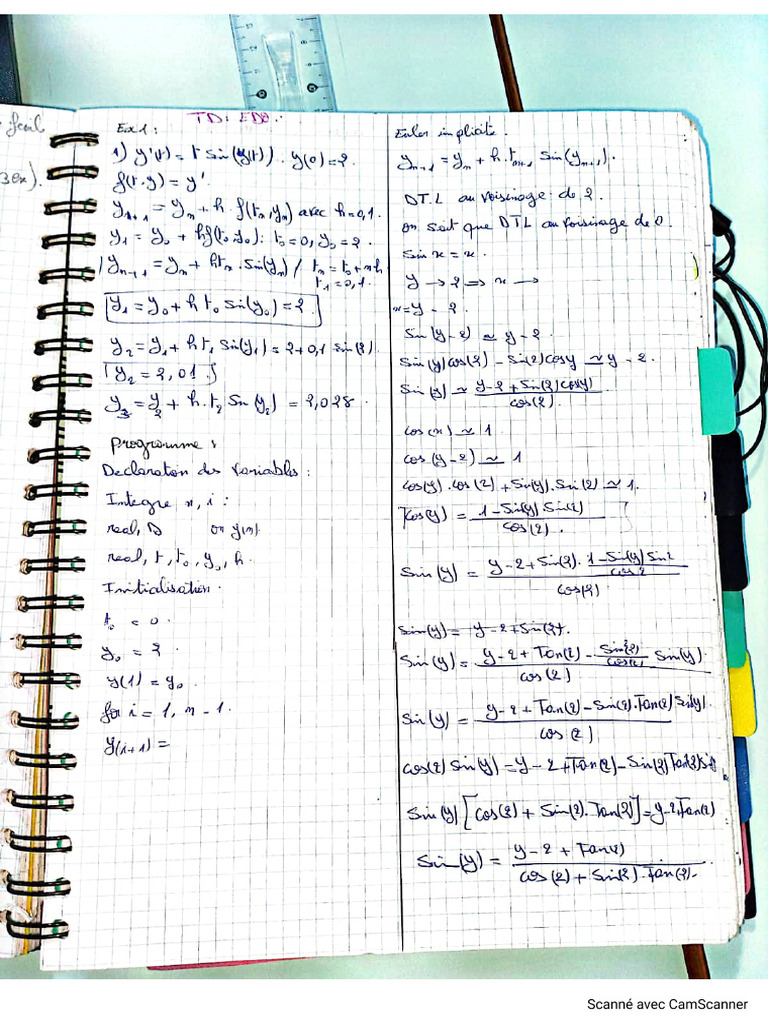 TD: EDO.
Ex1:
1) y'(t) = t sin(y(t)). y(0)=2.
f(t,y) = y'
y_{n+1} = y_n + h f(t_n, y_n) avec h=0,1.
y_1 = y_0 + h f(t_0, y_0): t_0=0, y_0=2.
y_{n+1} = y_n + h t_n . sin(y_n) / t_n = t_0 + n h
t_1 = 0,1.
y_1 = y_0 + h t_0 sin(y_0) = 2
y_2 = y_1 + h t_1 sin(y_1) = 2 + 0,1 sin(2).
y_2 = 2,01
y_3 = y_2 + h. t_2 Sin(y_2) = 2,028
programme:
Declaration des variables:
Integre n, i:
real, D ou y(n).
real, t, t_0, y_0, h.
Initialisation.
t_0 = 0.
y_0 = 2.
y(1) = y_0.
for i = 1, n - 1.
y(i+1) =
Euler implicite.
y_{n+1} = y_n + h. t_{n+1} Sin(y_{n+1}).
DT.L au voisinage de 2
on sait que DTL au voisinage de 0.
Sin x = x.
y → 2 ⇒ x →
x = y - 2.
Sin(y-2) ≃ y-2.
Sin(y)cos(2) - Sin(2)cosy ≃ y - 2.
Sin(y) ≃ \frac{y-2+Sin(2)cos(y)}{cos(2)}.
cos(x) ≃ 1
cos(y-2) ≃ 1
cos(y).cos(2) + Sin(y).Sin(2) ≃ 1.
cos(y) = \frac{1-Sin(y)Sin(2)}{cos(2)}.
Sin(y) = \frac{y-2+Sin(2).\frac{1-Sin(y)Sin2}{cos2}}{cos(2)}
Sin(y) = y-2+Sin(2).
Sin(y) = \frac{y-2+Tan(2)-\frac{Sin²(2)}{cos(2)}Sin(y)}{cos(2)}
Sin(y) = \frac{y-2+Tan(2)-Sin(2).Tan(2)Sin(y)}{cos(2)}
cos(2)Sin(y) = y-2+Tan(2)-Sin(2)Tan(2)Sin(y)
Sin(y)[cos(2)+Sin(2).Tan(2)] = y-2+Tan(2)
Sin(y) = \frac{y-2+Tan(2)}{cos(2)+Sin(2).Tan(2)}.
Scanné avec CamScanner